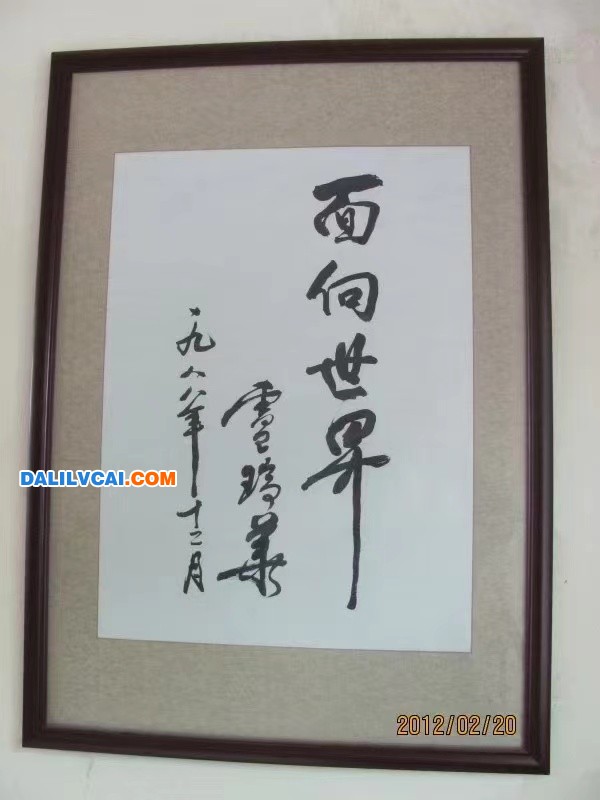 面向世界
雷瑞華
一九八八年十二月
DALILVCAI.COM
2012/02/20